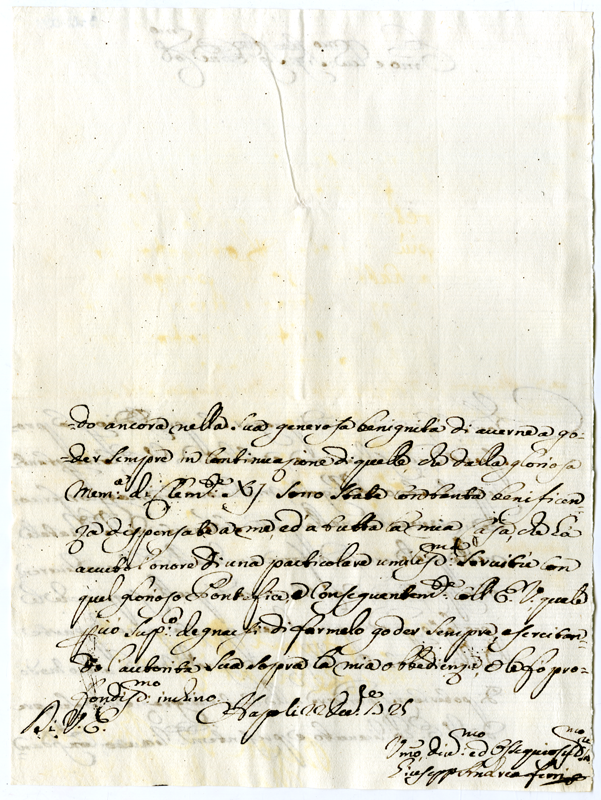 -do ancora nella sua generosa benignità di averne a go-
-der sempre in continuazione di quelle che dalla gloriosa
Mem.a di Clem.te XI sono state con tanta beneficen
za dispensate a me, ed a tutta la mia Casa, che ha
avuto l'onore di una particolare umiliss.ma Servitù con
quel glorioso Pontefice, e conseguentem.te coll' E. V. quale
Sup.co degnarsi di farmelo goder sempre, esercitan-
do l'autorità Sua sopra la mia obbedienza, e le fò pro-
fondiss.mo inchino
Di V. E. Napoli 1725
Um.o div.mo ed osseq.mo
Giuseppe Andrea